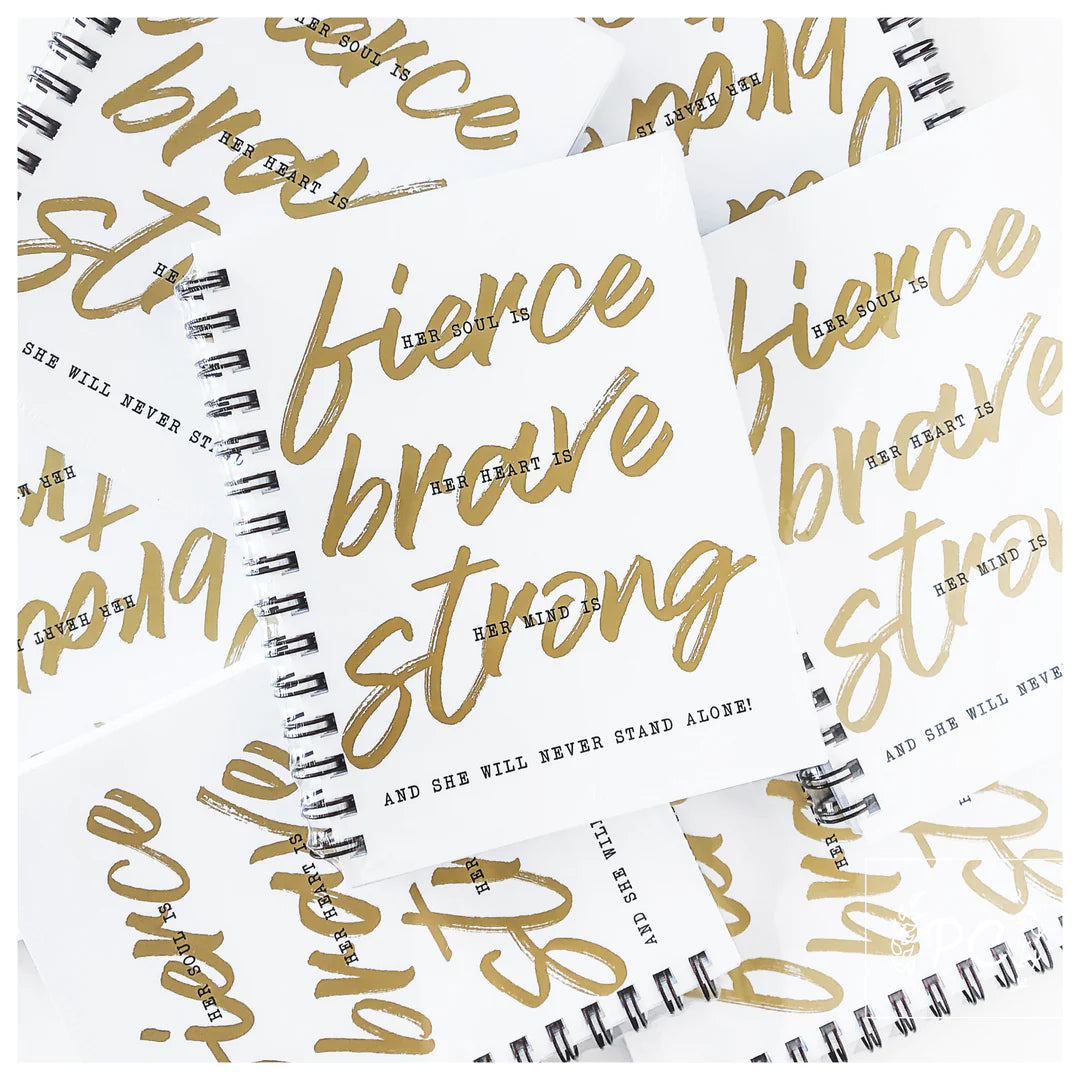 HER SOUL IS
fierce
HER HEART IS
brave
HE
st
SHE WILL NEVER ST
HER HEART IS
HER SOUL IS
fierce
HER HEART IS
brave
HER MIND IS
strong
AND SHE WILL NEVER STAND ALONE!
HER SOUL IS
fierce
HER HEART IS
brave
HER MIND IS
strong
AND SHE WILL NEVE
HER HEART
brave
HER SOUL IS
fierce
HER HEART IS
brave
HER
st
AND SHE WILL
HER
PC